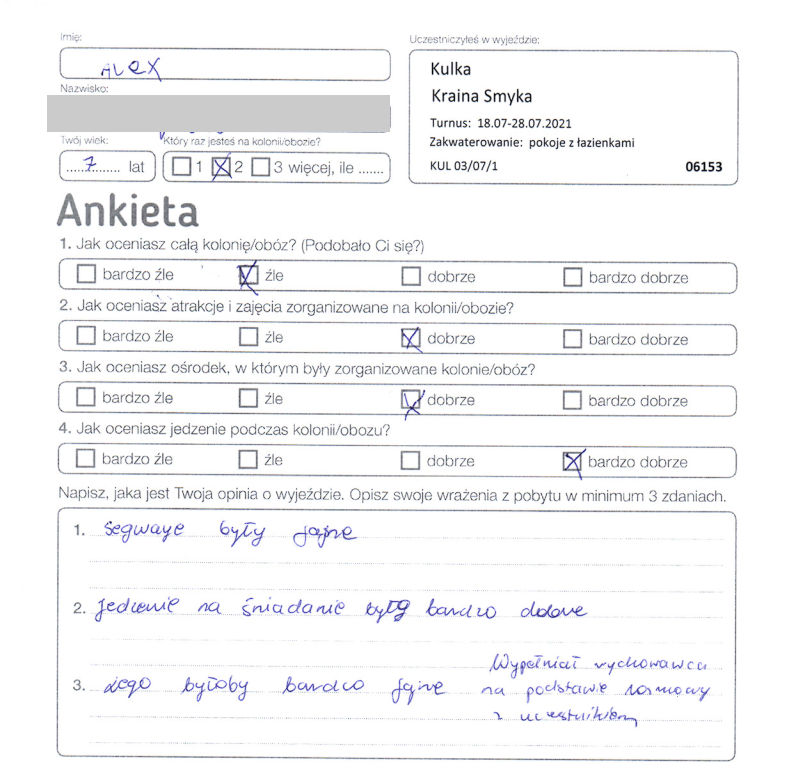 Imię:
ALEX
Uczestniczyłeś w wyjeździe:
Kulka
Kraina Smyka
Turnus: 18.07-28.07.2021
Zakwaterowanie: pokoje z łazienkami
KUL 03/07/1 06153
Nazwisko:
Twój wiek:
Który raz jesteś na kolonii/obozie?
7 lat
1 2 3 więcej, ile .......
Ankieta
1. Jak oceniasz całą kolonię/obóz? (Podobało Ci się?)
bardzo źle źle dobrze bardzo dobrze
2. Jak oceniasz atrakcje i zajęcia zorganizowane na kolonii/obozie?
bardzo źle źle dobrze bardzo dobrze
3. Jak oceniasz ośrodek, w którym były zorganizowane kolonie/obóz?
bardzo źle źle dobrze bardzo dobrze
4. Jak oceniasz jedzenie podczas kolonii/obozu?
bardzo źle źle dobrze bardzo dobrze
Napisz, jaka jest Twoja opinia o wyjeździe. Opisz swoje wrażenia z pobytu w minimum 3 zdaniach.
1. Segwaye były fajne
2. Jedzenie na śniadanie było bardzo dobre
3. Lego byłoby bardzo fajne
Wypełniał wychowawca
na podstawie rozmowy
z uczestnikiem